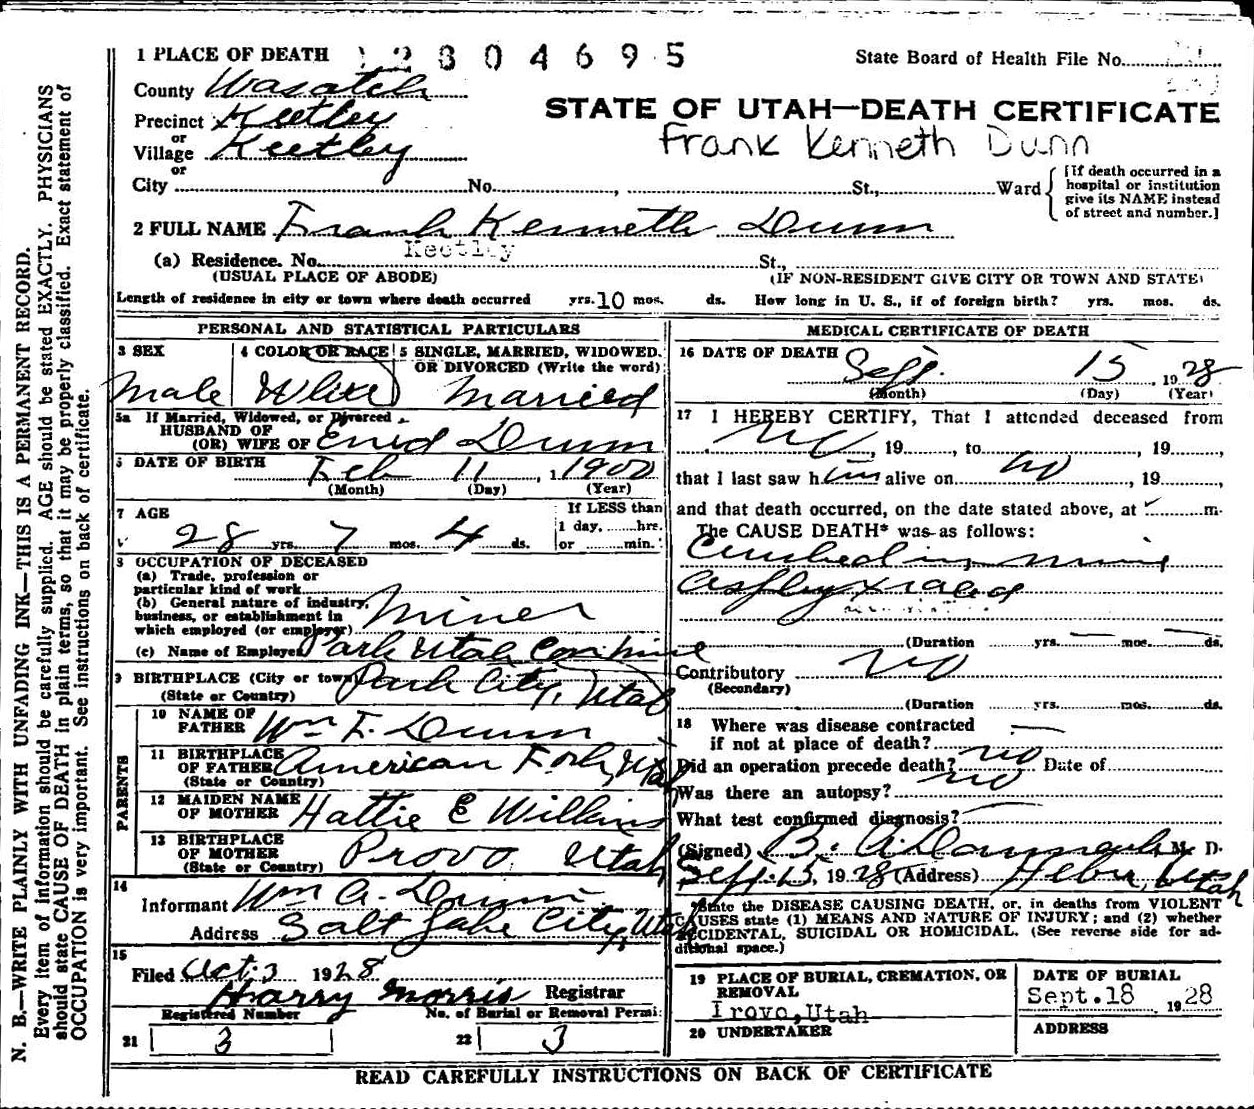 N. B.—WRITE PLAINLY WITH UNFADING INK—THIS IS A PERMANENT RECORD.
Every item of information should be carefully supplied. AGE should be stated EXACTLY. PHYSICIANS
should state CAUSE OF DEATH in plain terms, so that it may be properly classified. Exact statement of
OCCUPATION is very important. See instructions on back of certificate.
1 PLACE OF DEATH 2804695
State Board of Health File No.
County Wasatch
STATE OF UTAH—DEATH CERTIFICATE
Precinct Keetley
Frank Kenneth Dunn
or
Village Keetley
or
City No. , St., Ward
[If death occurred in a
hospital or institution
give its NAME instead
of street and number.]
2 FULL NAME Frank Kenneth Dunn
(a) Residence. No. Keetley St.,
(USUAL PLACE OF ABODE) (IF NON-RESIDENT GIVE CITY OR TOWN AND STATE)
Length of residence in city or town where death occurred yrs. 10 mos. ds. How long in U. S., if of foreign birth? yrs. mos. ds.
PERSONAL AND STATISTICAL PARTICULARS
3 SEX 4 COLOR OR RACE 5 SINGLE, MARRIED, WIDOWED.
OR DIVORCED (Write the word)
Male White Married
5a If Married, Widowed, or Divorced
HUSBAND OF
(OR) WIFE OF Enid Dunn
DATE OF BIRTH Feb 11, 1900
(Month) (Day) (Year)
7 AGE If LESS than
28 yrs. 7 mos. 4 ds. 1 day, hrs.
or min.
8 OCCUPATION OF DECEASED
(a) Trade, profession or
particular kind of work
(b) General nature of industry,
business, or establishment in
which employed (or employer) Miner
(c) Name of Employer Park Utah
9 BIRTHPLACE (City or town) Park City, Utah
(State or Country)
PARENTS
10 NAME OF
FATHER Wm F. Dunn
11 BIRTHPLACE
OF FATHER American Fork, Utah
(State or Country)
12 MAIDEN NAME
OF MOTHER Hattie E Wilkins
13 BIRTHPLACE
OF MOTHER Provo Utah
(State or Country)
14
Informant Wm A. Dunn
Address Salt Lake City, Utah
15
Filed Oct. 3 1928
Harry Morris Registrar
Registered Number No. of Burial or Removal Permit
21 3 22 3
MEDICAL CERTIFICATE OF DEATH
16 DATE OF DEATH Sept. 15, 1928
(Month) (Day) (Year)
17 I HEREBY CERTIFY, That I attended deceased from
no, 19 , to , 19 ,
that I last saw him alive on no , 19 ,
and that death occurred, on the date stated above, at m.
The CAUSE DEATH* was as follows:
Crushed in mine
(Duration yrs. mos. ds.
Contributory no
(Secondary)
(Duration yrs. mos. ds.
18 Where was disease contracted
if not at place of death?
Did an operation precede death? no Date of
Was there an autopsy? no
What test confirmed diagnosis?
(Signed) B. A. M. D.
Sept. 15, 1928 (Address) Heber, Utah
*State the DISEASE CAUSING DEATH, or, in deaths from VIOLENT
CAUSES state (1) MEANS AND NATURE OF INJURY; and (2) whether
ACCIDENTAL, SUICIDAL OR HOMICIDAL. (See reverse side for ad-
ditional space.)
19 PLACE OF BURIAL, CREMATION, OR
REMOVAL
Provo, Utah
DATE OF BURIAL
Sept. 18 1928
20 UNDERTAKER ADDRESS
READ CAREFULLY INSTRUCTIONS ON BACK OF CERTIFICATE